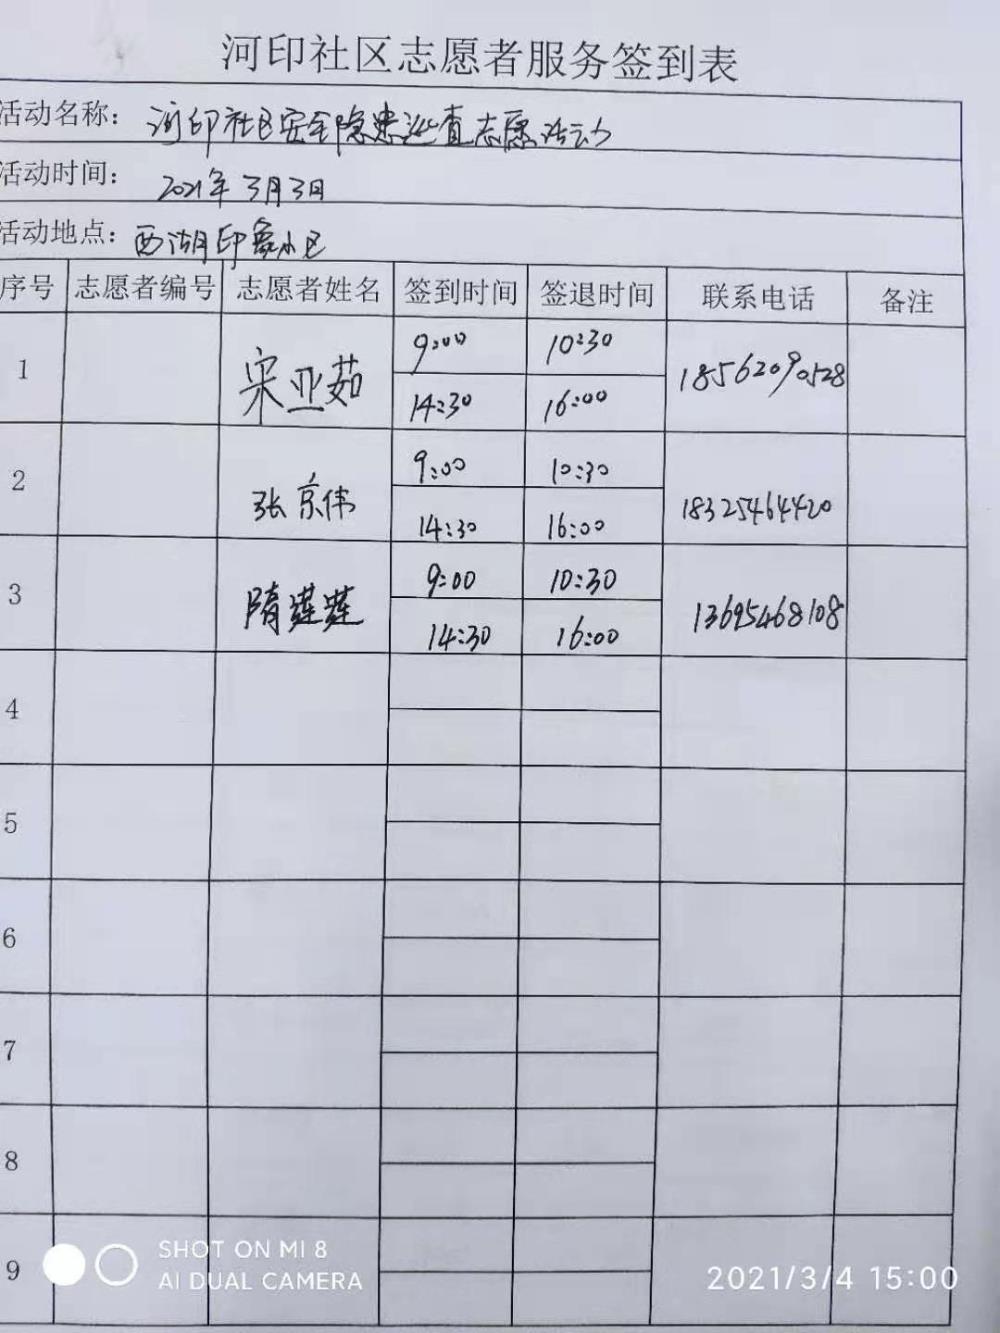 河印社区志愿者服务签到表
活动名称： 河印社区安全隐患巡查志愿活动
活动时间： 2021年3月3日
活动地点： 西湖印象小区
序号 志愿者编号 志愿者姓名 签到时间 签退时间 联系电话 备注
1 宋亚茹 9:00 10:30 18562090528
14:30 16:00
2 张京伟 9:00 10:30 18325464420
14:30 16:00
3 隋莲莲 9:00 10:30 13695468108
14:30 16:00
4
5
6
7
8
9
SHOT ON MI 8
AI DUAL CAMERA
2021/3/4 15:00